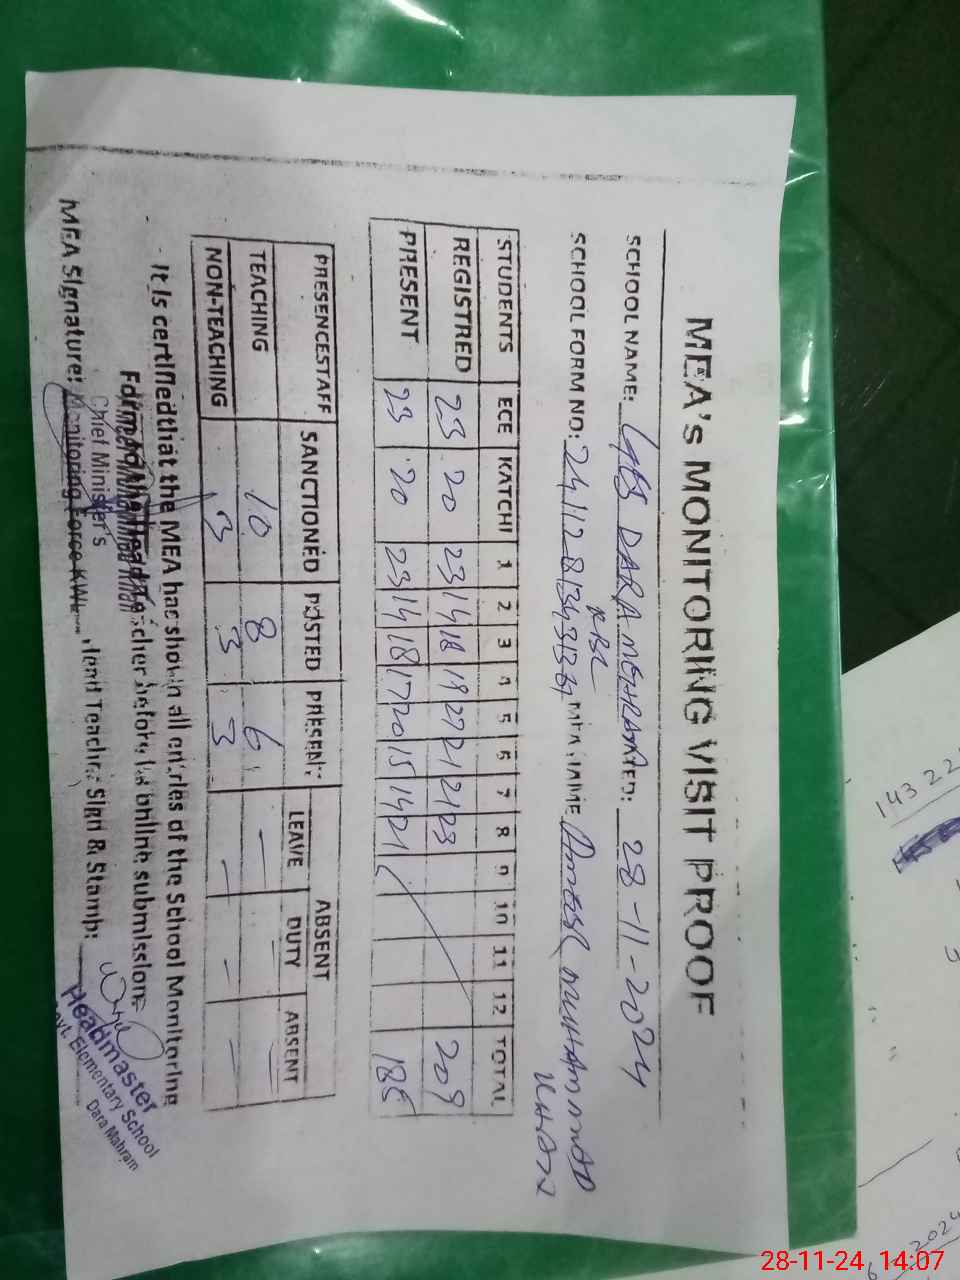 MEA's MONITORING VISIT PROOF
SCHOOL NAME: GES DARA DATED: 28-11-2024
SCHOOL FORM NO: MEA NAME AMEER MUHAMMAD
KHAN
STUDENTS ECE KATCHI 1 2 3 4 5 6 7 8 9 10 11 12 TOTAL
REGISTRED 23 20 23 14 18 19 27 21 21 23 209
PRESENT 23 20 23 14 18 17 20 15 14 21 185
PRESENCESTAFF SANCTIONED POSTED PRESENT ABSENT
LEAVE DUTY ABSENT
TEACHING 10 8 6 — — —
NON-TEACHING 3 3 3 — — —
It is certified that the MEA has shown all entries of the School Monitoring
Form to the Head Teacher before his online submission
Ameer Muhammad Khan
Chief Minister's
Monitoring Force KWL
MEA Signature: Head Teacher Sign & Stamp:
Headmaster
Govt. Elementary School
Dara Mahram
143 22
2024
28-11-24, 14:07